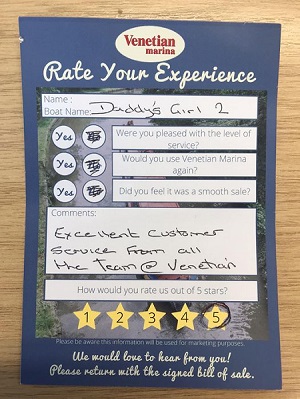 Venetian
marina
Rate Your Experience
Name :
Boat Name: Daddy's Girl 2
Yes
Were you pleased with the level of
service?
Yes
Would you use Venetian Marina
again?
Yes
Did you feel it was a smooth sale?
Comments:
Excellent Customer
Service from all
the team @ Venetian
How would you rate us out of 5 stars?
1 2 3 4 5
Please be aware this information will be used for marketing purposes.
We would love to hear from you!
Please return with the signed bill of sale.